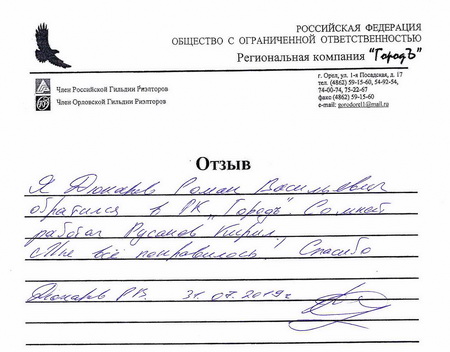 РОССИЙСКАЯ ФЕДЕРАЦИЯ
ОБЩЕСТВО С ОГРАНИЧЕННОЙ ОТВЕТСТВЕННОСТЬЮ
Региональная компания "Городъ"
Член Российской Гильдии Риэлторов
Член Орловской Гильдии Риэлторов
г. Орел, ул. 1-я Посадская, д. 17
тел. (4862) 59-15-60, 54-92-54,
74-00-74, 75-22-67
факс (4862) 59-15-60
e-mail: gorodorel1@mail.ru
Отзыв
Я Дюкарев Роман Васильевич
обратился в РК "Городъ". Со мной
работал Русанов Кирил,
Мне всё понравилось, Спасибо
Дюкарев Р.В. 31.07.2019г